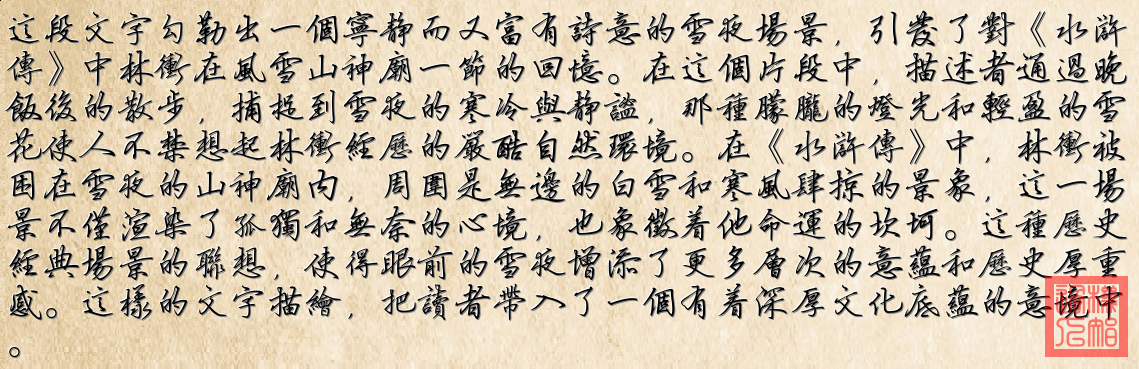 這段文字勾勒出一個寧靜而又富有詩意的雪夜場景，引發了對《水滸
傳》中林衝在風雪山神廟一節的回憶。在這個片段中，描述者通過晚
飯後的散步，捕捉到雪夜的寒冷與靜謐，那種朦朧的燈光和輕盈的雪
花使人不禁想起林衝經歷的嚴酷自然環境。在《水滸傳》中，林衝被
困在雪夜的山神廟內，周圍是無邊的白雪和寒風肆掠的景象，這一場
景不僅渲染了孤獨和無奈的心境，也象徵着他命運的坎坷。這種歷史
經典場景的聯想，使得眼前的雪夜增添了更多層次的意蘊和歷史厚重
感。這樣的文字描繪，把讀者帶入了一個有着深厚文化底蘊的意境中
。